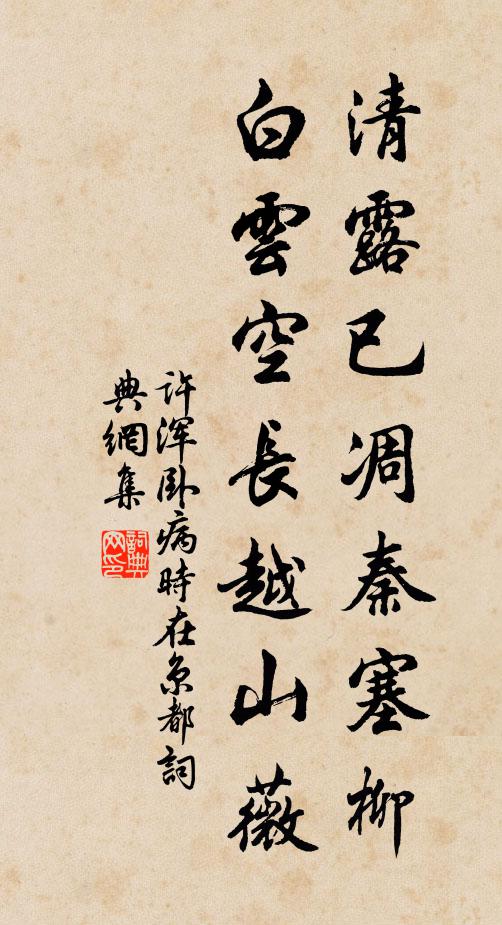 清露已凋秦塞柳
白雲空長越山薇
许浑卧病時在京都詞
典網集
詞典網印